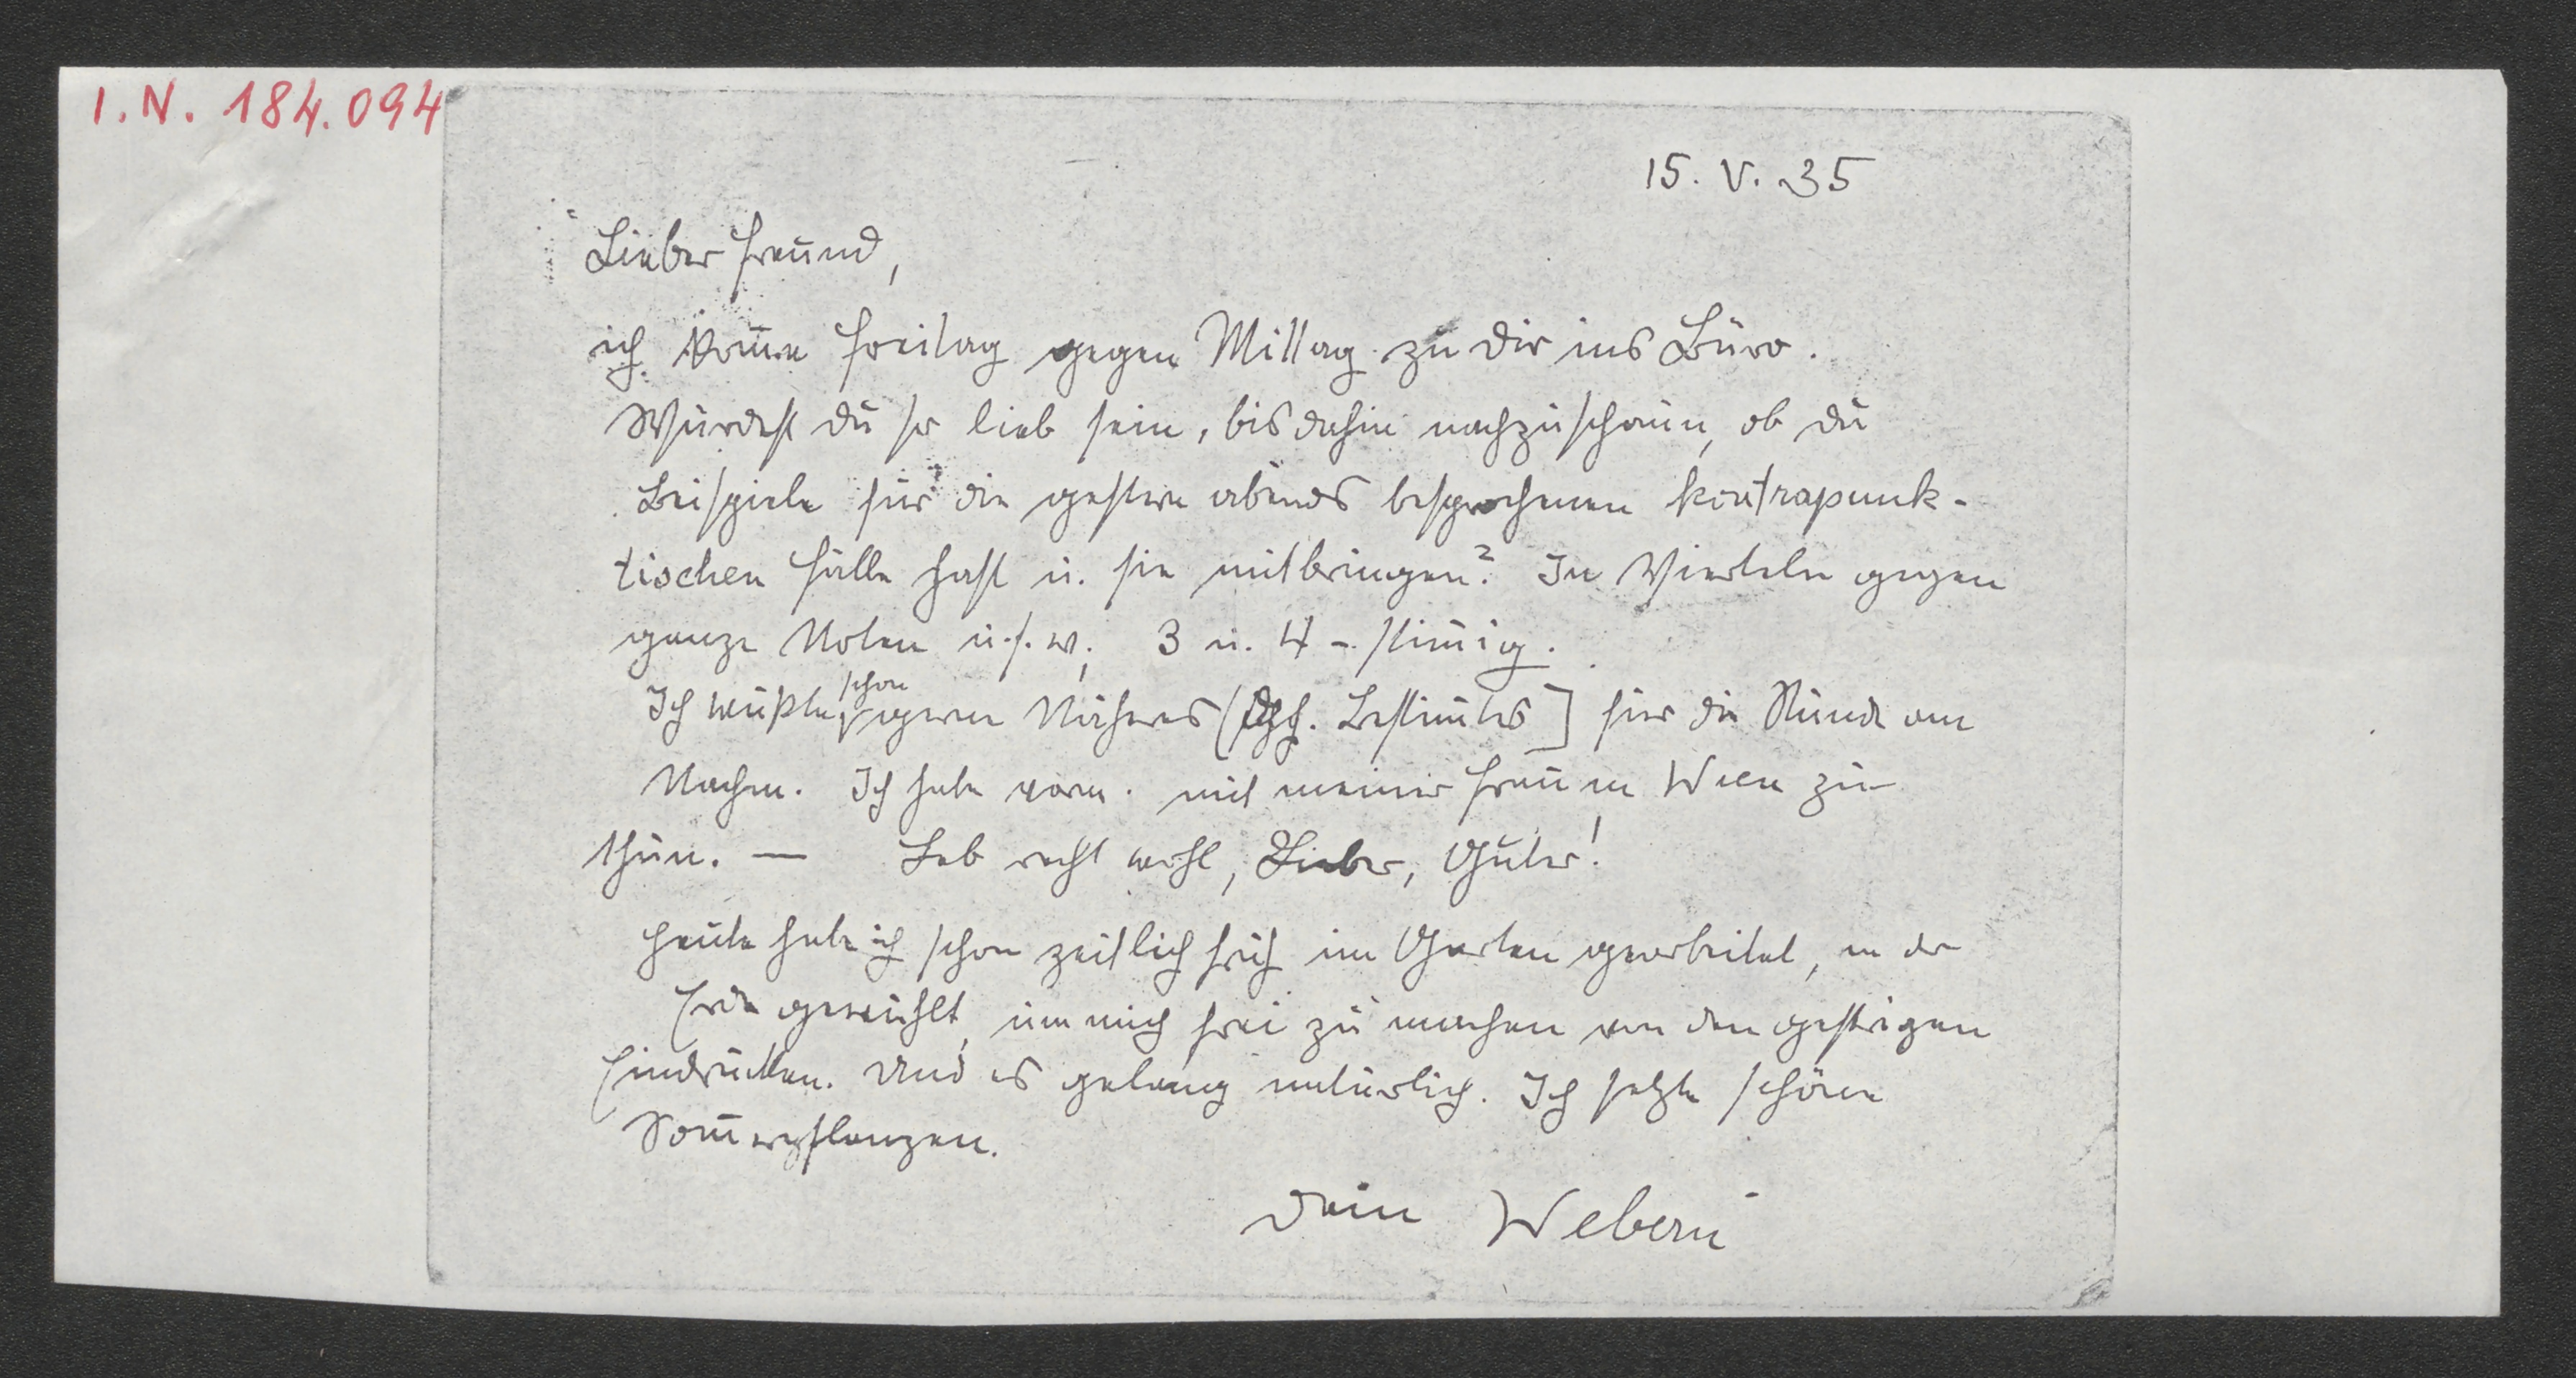 I.N. 184.094
15. V. 35
Lieber Freund,
ich kom̅e Freitag gegen Mittag zu Dir ins Büro.
Würdest Du so lieb sein, bis dahin nachzuschaun, ob Du
Beispiele für die gestern abends besprochenen kontrapunk-
tischen Fälle hast u. sie mitbringen? In Vierteln gegen
ganze Noten u.s.w., 3 u. 4-stim̅ig.
Ich wüßte schon gern Näheres ( Bestim̅tes) für die Stunde am
Nachm. Ich habe vorm. mit meiner Frau in Wien zu
thun. — Leb recht wohl, Lieber, Guter!
Heute habe ich schon zeitlich früh im Garten gearbeitet, in der
Erde gewühlt, um mich frei zu machen von den gestrigen
Eindrücken. Und es gelang natürlich. Ich setzte schöne
Som̅erpflanzen.
Dein Webern